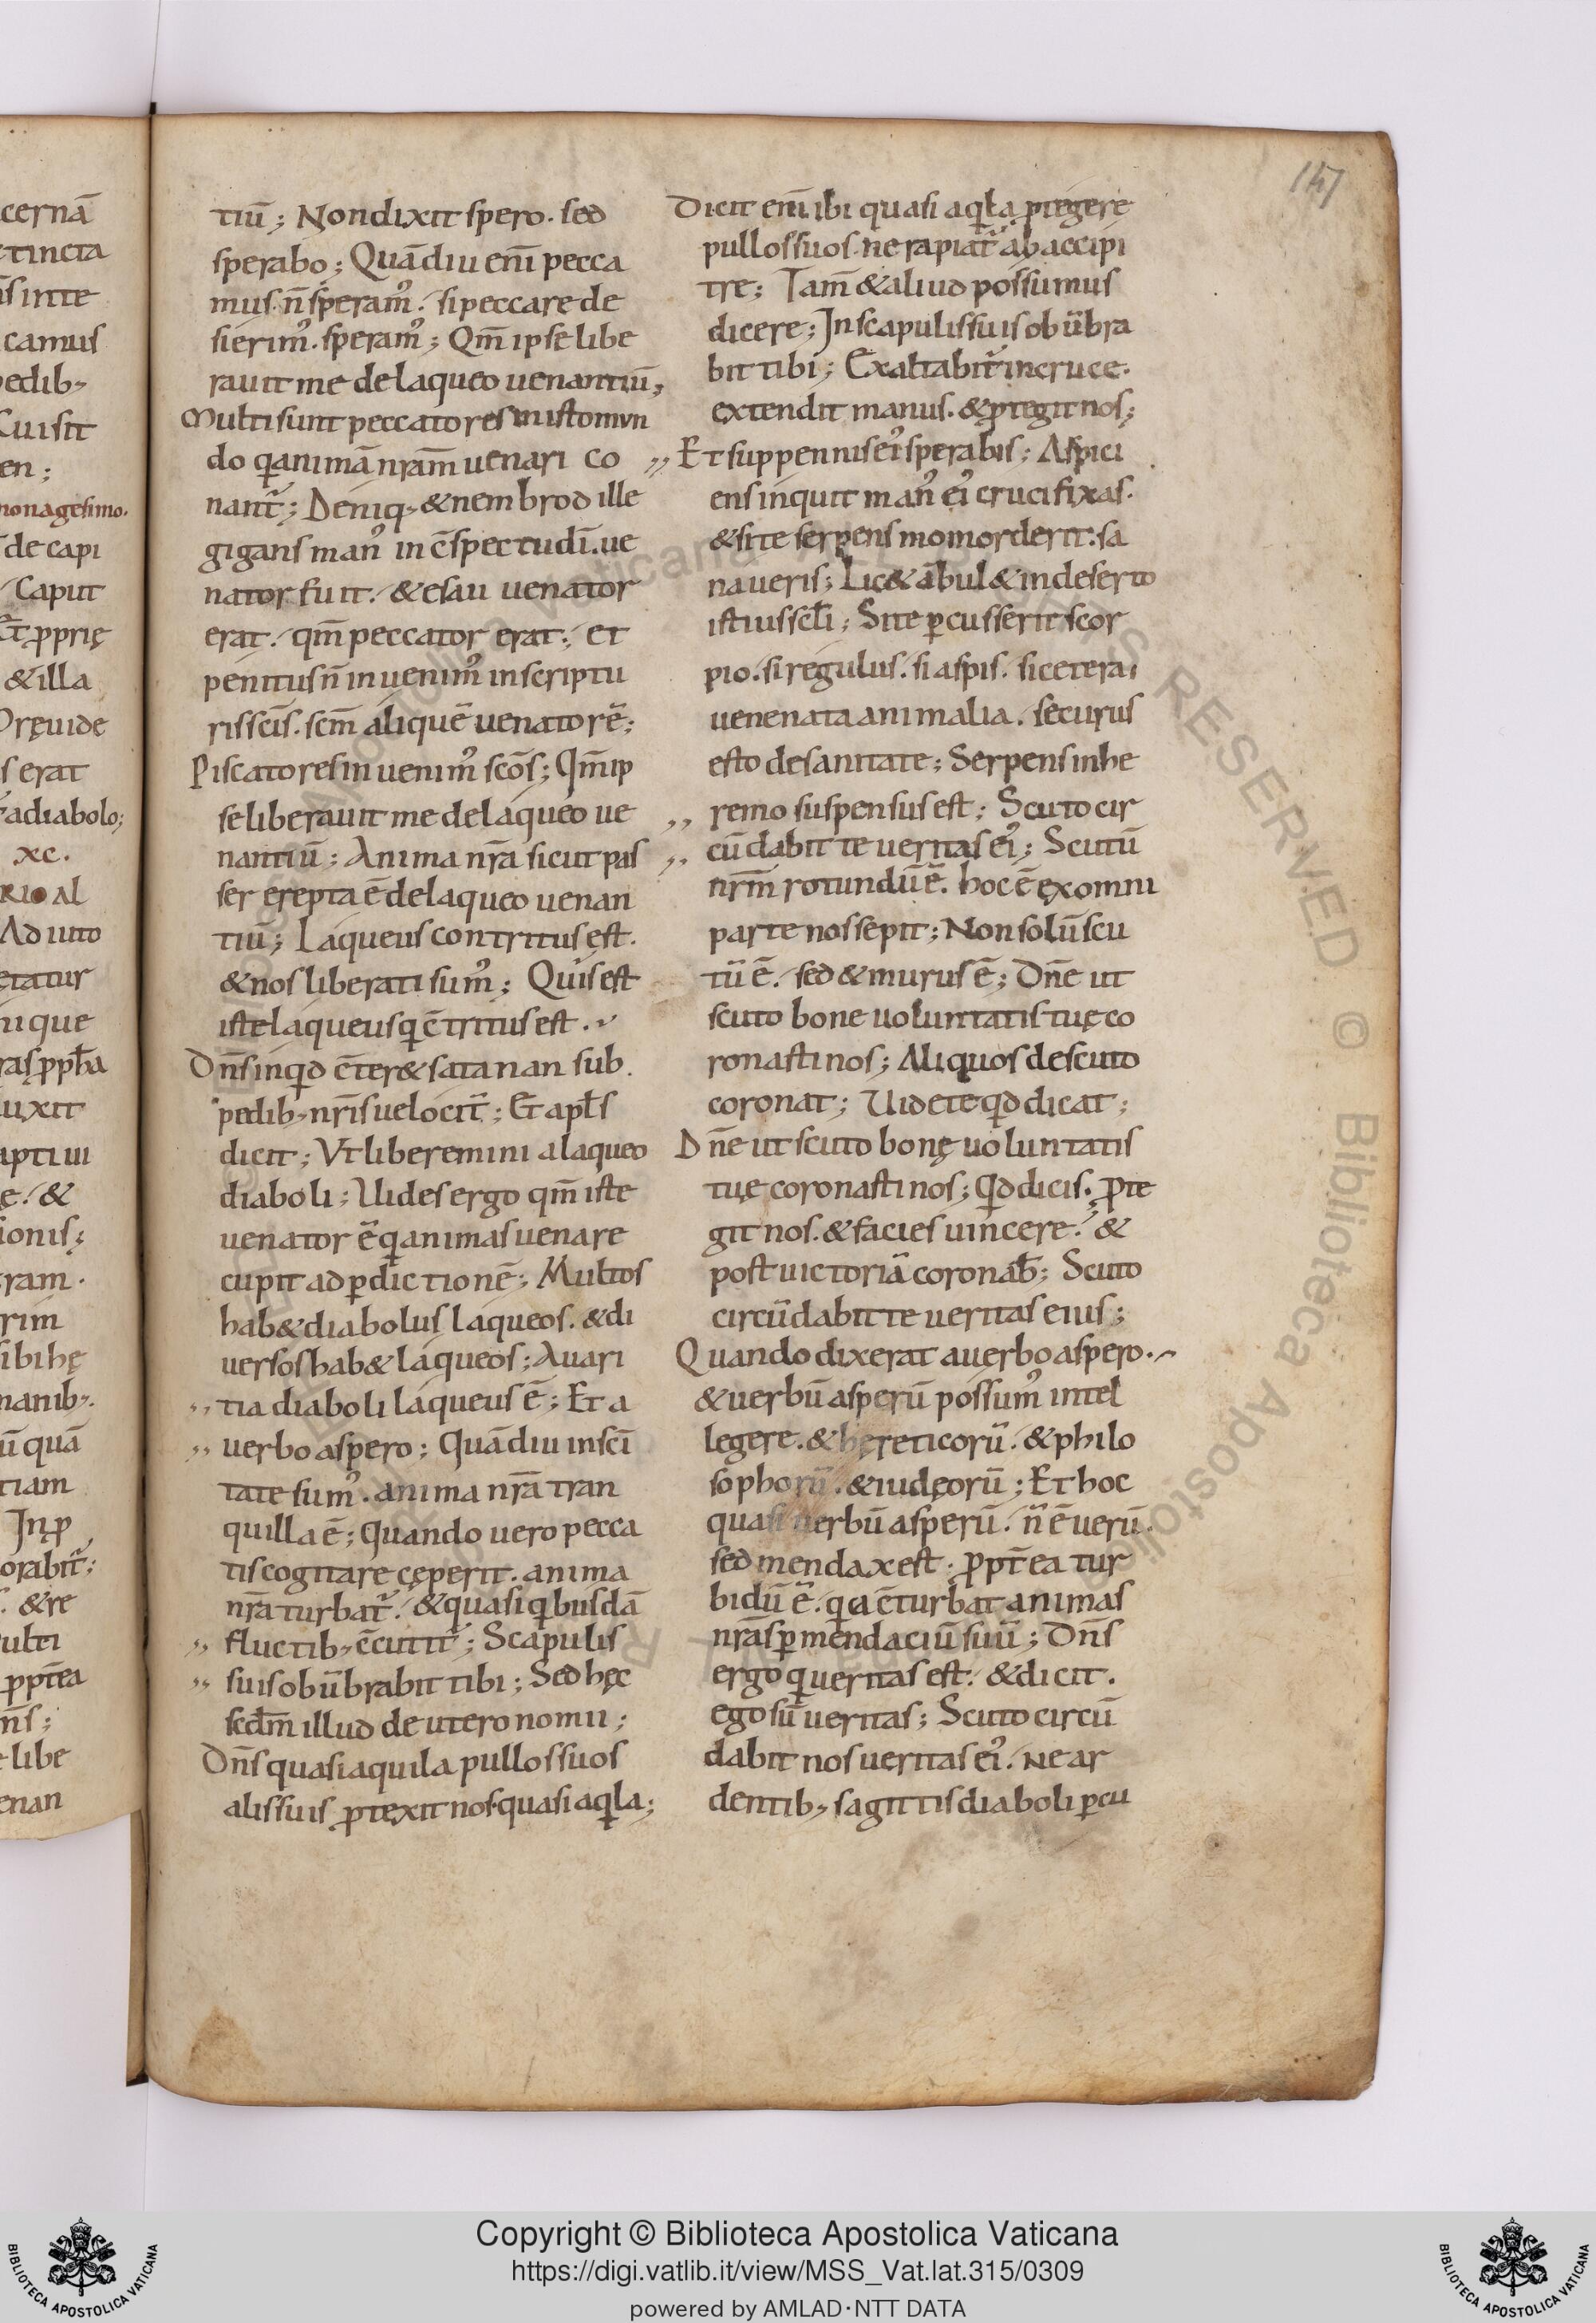 cernā
tincta
s in te
camus
pedib;
Cui sit
en;
nonagesimo.
de capi
Caput
pprię
& illa
Oręuide
s erat
a diabolo;
xc.
RIO AL
Adiuto
etatur
nique
ras ppħa
uxit
apti ui
ę. &
ionis;
ram.
rim
ibi hę
manib;.
ū quā
tiam
In p
orabit᷑;
. & re
ulti
pp̄tea
n̄s;
libe
enan
tiū; Non dixit spero. sed
sperabo; Quādiu enī pecca
mus. n̄ speram᾽. si peccare de
sierim᾽. speram᾽; Qm̄ ipse libe
rauit me de laqueo uenantiū;
Multi sunt peccatores in isto mun
do q animā nram̄ uenari co
nant᷑; Deniq; & nembrod ille
gigans man᾽ in c̄spectu dī. ue
nator fuit. & esau uenator
erat. qm̄ peccator erat; et
penitus n̄ inuenim᾽ in scriptu
ris scīs. scm̄ aliquē uenatorē;
Piscatores inuenim᾽ scōs; Qm̄ ip
se liberauit me de laqueo ue
nantiū; Anima nr̄a sicut pas
ser erepta ē de laqueo uenan
tiū; Laqueus contritus est.
& nos liberati sum᾽; Quis est
iste laqueus q c̄tritus est.
Dn̄s inqd c̄ter& satanan sub
pedib; nr̄is uelocit᷑; Et apłs
dicit; Vt liberemini a laqueo
diaboli; Uides ergo qm̄ iste
uenator ē q animas uenare
cupit ad pdictionē; Multos
hab& diabolus laqueos. & di
uersos hab& laqueos; Auari
,, tia diaboli laqueus ē; Et a
,, uerbo aspero; Quādiu in scī
tate sum᾽. anima nr̄a tran
quilla ē; Quando uero pecca
tis cogitare cęperit. anima
nr̄a turbat᷑. & quasi qbusdā
,, fluctib; c̄cutit᷑; Scapulis
,, suis obūbrabit tibi; Sed hęc
scdm̄ illud deuteronomii;
Dn̄s quasi aquila pullos suos
alis suis ptexit nos. quasi aqla;
147
Dicit enī ibi quasi aqła ptegere
pullos suos. ne rapiat᷑ ab accipi
tre; Tam̄ & aliud possumus
dicere; In scapulis suis obūbra
bit tibi; Exaltabit᷑ in cruce.
extendit manus. & ptegit nos;
,, Et sup pennis ei᾽ sperabis; Aspici
ens inquit man᾽ ei᾽ crucifixas.
& si te serpens momorderit. sa
naueris; Lic& ābul& in deserto
istius scłi; Si te pcusserit scor
pio. si regulus. si aspis. si cetera
uenenata animalia. securus
esto de sanitate; Serpens in he
,, remo suspensus est; Scuto cir
,, cūdabit te ueritas ei᾽; Scutū
nrm̄ rotundū ē. hoc ē ęx omni
parte nos sepit; Non solū scu
tū ē. sed & murus ē; Dn̄e ut
scuto bone uoluntatis tuę co
ronasti nos; Aliquos de scuto
coronat; Uidete qd dicat;
Dn̄e ut scuto bonę uoluntatis
tuę coronasti nos; Qd dicis. pte
git nos. & facies uincere. &
post uictoriā coronab̄; Scuto
circūdabit te ueritas eius;
Quando dixerat a uerbo aspero.
& uerbū asperū possum᾽ intel
legere. & hęreticorū. & philo
sophorū. & iudęorū; Et hoc
quasi uerbū asperū. n̄ ē uerū.
sed mendax est. ppt̄ea tur
bidū ē. qa c̄turbat animas
nr̄as p mendaciū suū; Dn̄s
ergo q ueritas est. & dicit.
ego sū ueritas; Scuto circū
dabit nos ueritas ei᾽. Ne ar
dentib; sagittis diaboli pcu
Copyright © Biblioteca Apostolica Vaticana
https://digi.vatlib.it/view/MSS_Vat.lat.315/0309
powered by AMLAD·NTT DATA